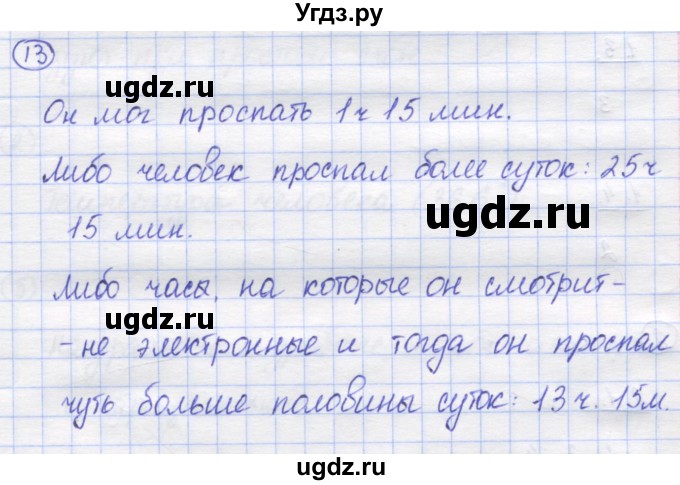 Угдз.ру
13
ugdz.ru
Он мог проспать 1ч 15 мин.
Либо человек проспал более суток: 25ч
ugdz.ru
15 мин.
Либо часы, на которые он смотрит-
ugdz.ru
-не электронные и тогда он проспал
чуть больше половины суток: 13 ч. 15м.
ugdz.ru